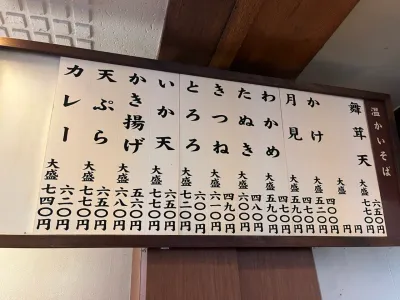 温かいそば
舞茸天 六五〇円
大盛 七七〇円
円
大盛 円
かけ 四〇〇円
大盛 五二〇円
月見 四七〇円
大盛 五九〇円
わかめ 四七〇円
大盛 五九〇円
たぬき 四八〇円
大盛 六〇〇円
きつね 四九〇円
大盛 六一〇円
とろろ 六〇〇円
大盛 七二〇円
いか天 六五〇円
大盛 七七〇円
かき揚げ 五六〇円
大盛 六八〇円
天ぷら 六五〇円
大盛 七七〇円
カレー 六二〇円
大盛 七四〇円